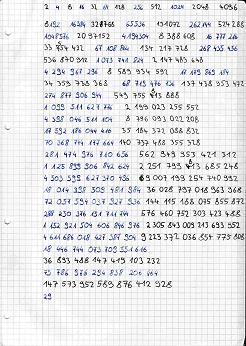 2 4 8 16 32 64 128 256 512 1024 2048 4096
8192 16384 32768 65536 131072 262144 524288
1048576 2097152 4194304 8 388 608 16 777 216
33 554 432 67 108 864 134 217 728 268 435 456
536 870 912 1 073 741 824 2 147 483 648
4 294 967 296 8 589 934 592 17 179 869 184
34 359 738 368 68 719 476 736 137 438 953 472
274 877 906 944 549 755 813 888
1 099 511 627 776 2 199 023 255 552
4 398 046 511 104 8 796 093 022 208
17 592 186 044 416 35 184 372 088 832
70 368 744 177 664 140 737 488 355 328
281 474 976 710 656 562 949 953 421 312
1 125 899 906 842 624 2 251 799 813 685 248
4 503 599 627 370 496 9 007 199 254 740 992
18 014 398 509 481 984 36 028 797 018 963 968
72 057 594 037 927 936 144 115 188 075 855 872
288 230 376 151 711 744 576 460 752 303 423 488
1 152 921 504 606 846 976 2 305 843 009 213 693 952
4 611 686 018 427 387 904 9 223 372 036 854 775 808
18 446 744 073 709 551 616
36 893 488 147 419 103 232
73 786 976 294 838 206 464
147 573 952 589 676 412 928
29